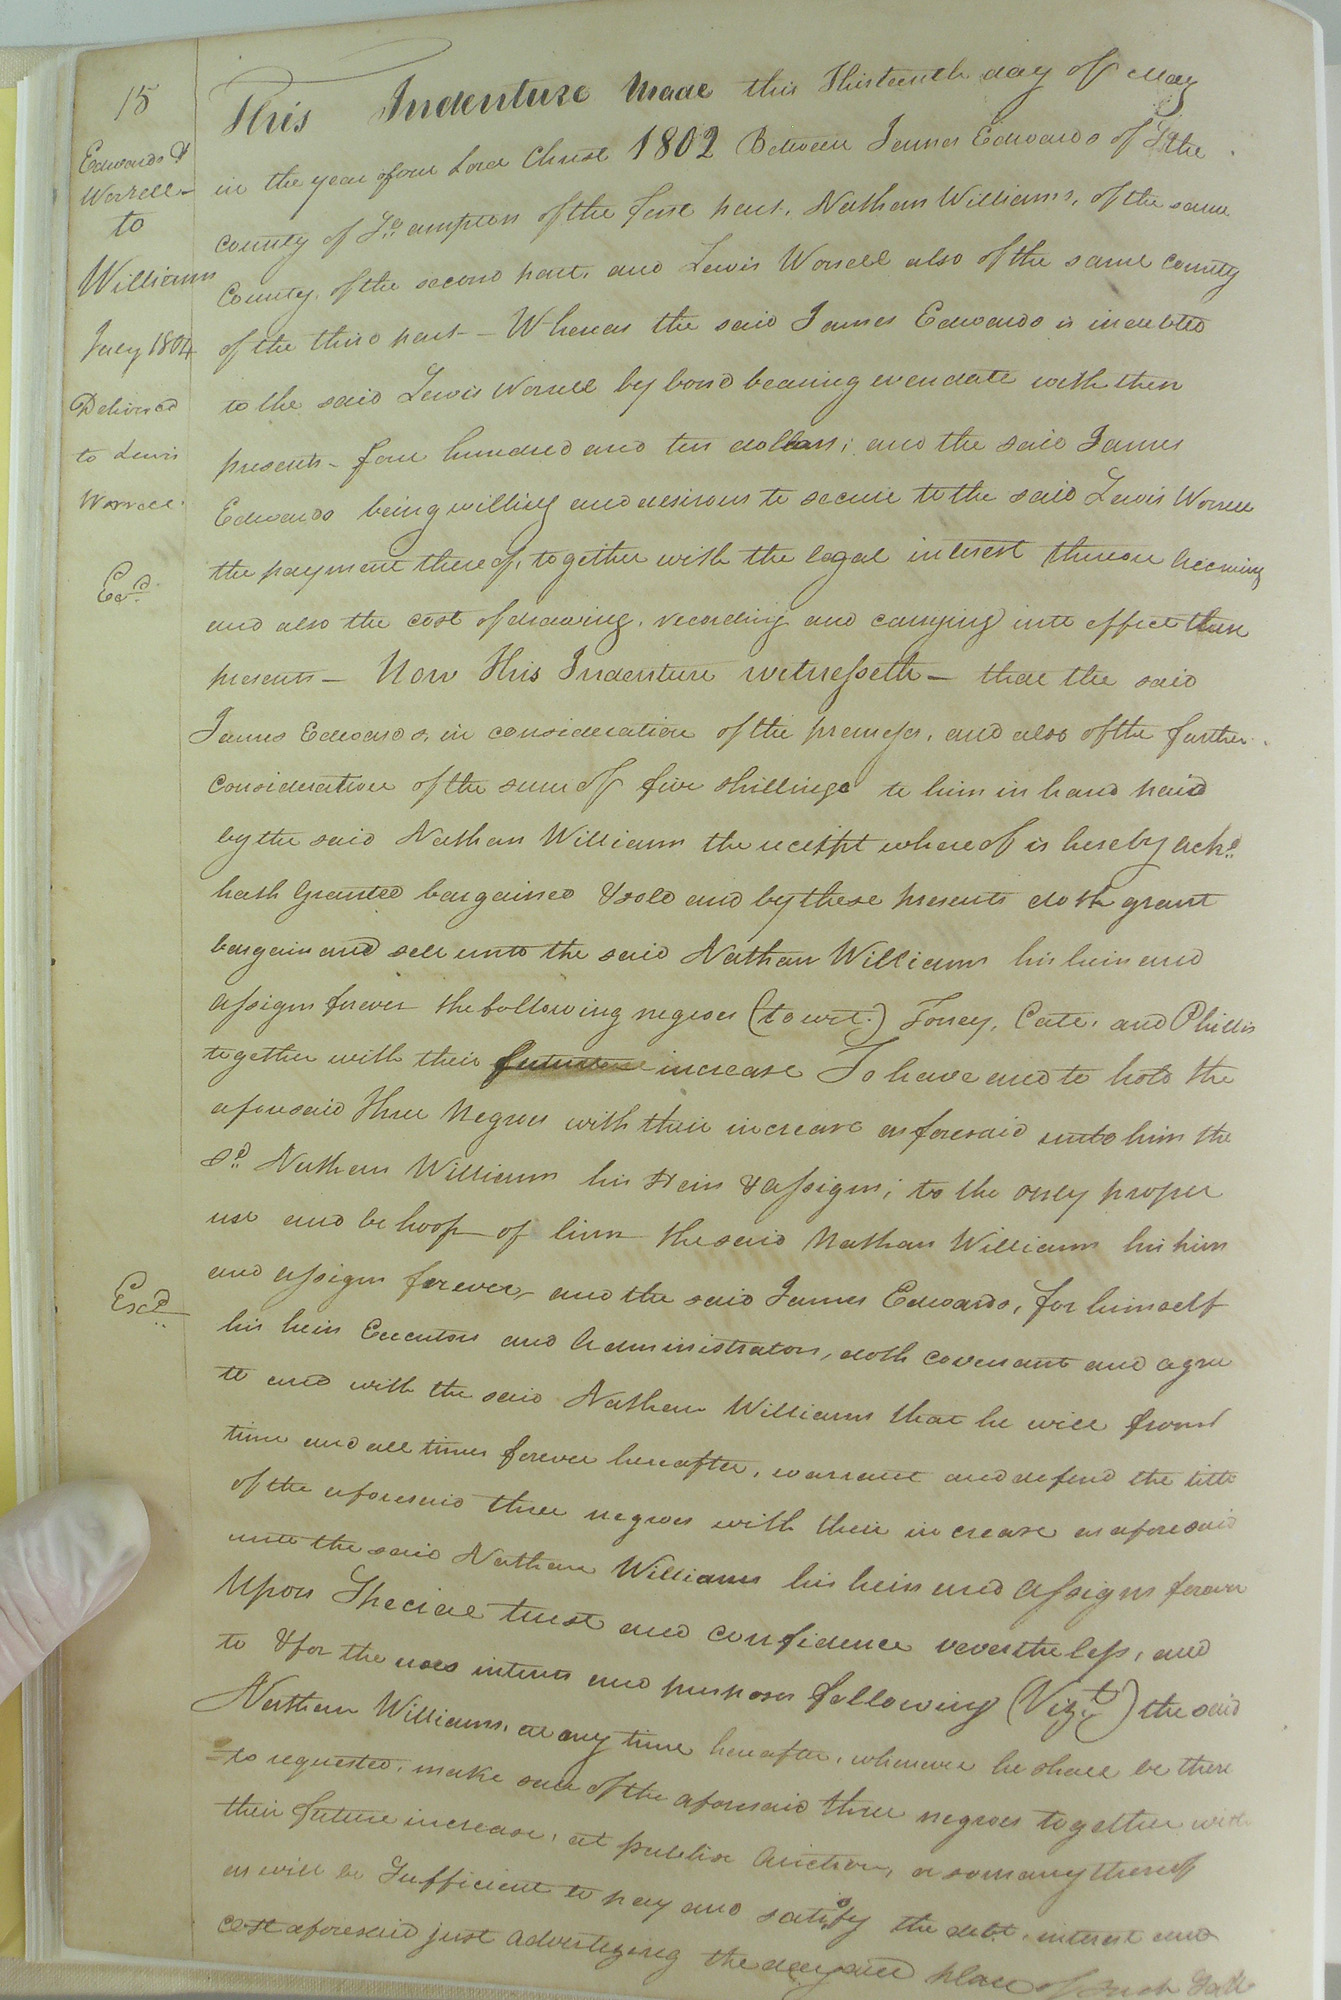 15
Edwards &
Worrell
to
Williams
July 1804
Delivered
to Lewis
Worrell
Exd.
Exd.
This Indenture made this Thirteenth day of May
in the year of our Lord Christ 1802 Between James Edwards of the
County of So. ampton of the first part, Nathan Williams, of the same
County, of the second part, and Lewis Worrell also of the same County
of the third part – Whereas the said James Edwards is indebted
to the said Lewis Worrell by bond bearing even date with these
presents – four hundred and ten dollars; and the said James
Edwards being willing and desirous to secure to the said Lewis Worrell
the payment thereof, together with the legal interest thereon accruing
and also the cost of drawing, recording and carrying into effect these
presents – Now This Indenture witnesseth – that the said
James Edwards, in consideration of the premises, and also of the further
consideration of the sum of five shillings to him in hand paid
by the said Nathan Williams the receipt whereof is hereby ackd.
hath Granted bargained & sold and by these presents doth grant
bargain and sell unto the said Nathan Williams his heirs and
assigns forever the following negroes (to wit.) Toney, Cate, and Phillis
together with their future increase To have and to hold the
aforesaid three Negroes with their increase as foresaid unto him the
sd. Nathan Williams his Heirs & assigns; to the only proper
use and behoof of him the said Nathan Williams his heirs
and assigns forever, and the said James Edwards, for himself
his heirs Executors and Administrators, doth covenant and agree
to and with the said Nathan Williams that he will from
time and all times forever hereafter, warrant and defend the title
of the aforesaid three negroes with their increase as aforesaid
unto the said Nathan Williams his heirs and assigns forever
Upon Special trust and confidence nevertheless, and
to & for the uses intents and purposes following (Vizt.) the said
Nathan Williams, at any time hereafter, whenever he shall be there
to requested, make sale of the aforesaid three negroes together with
their future increase, at publix Auction, or so many thereof
as will be Sufficient to pay and satisfy the debt, interest and
cost aforesaid just advertizing the day and place of such Sale